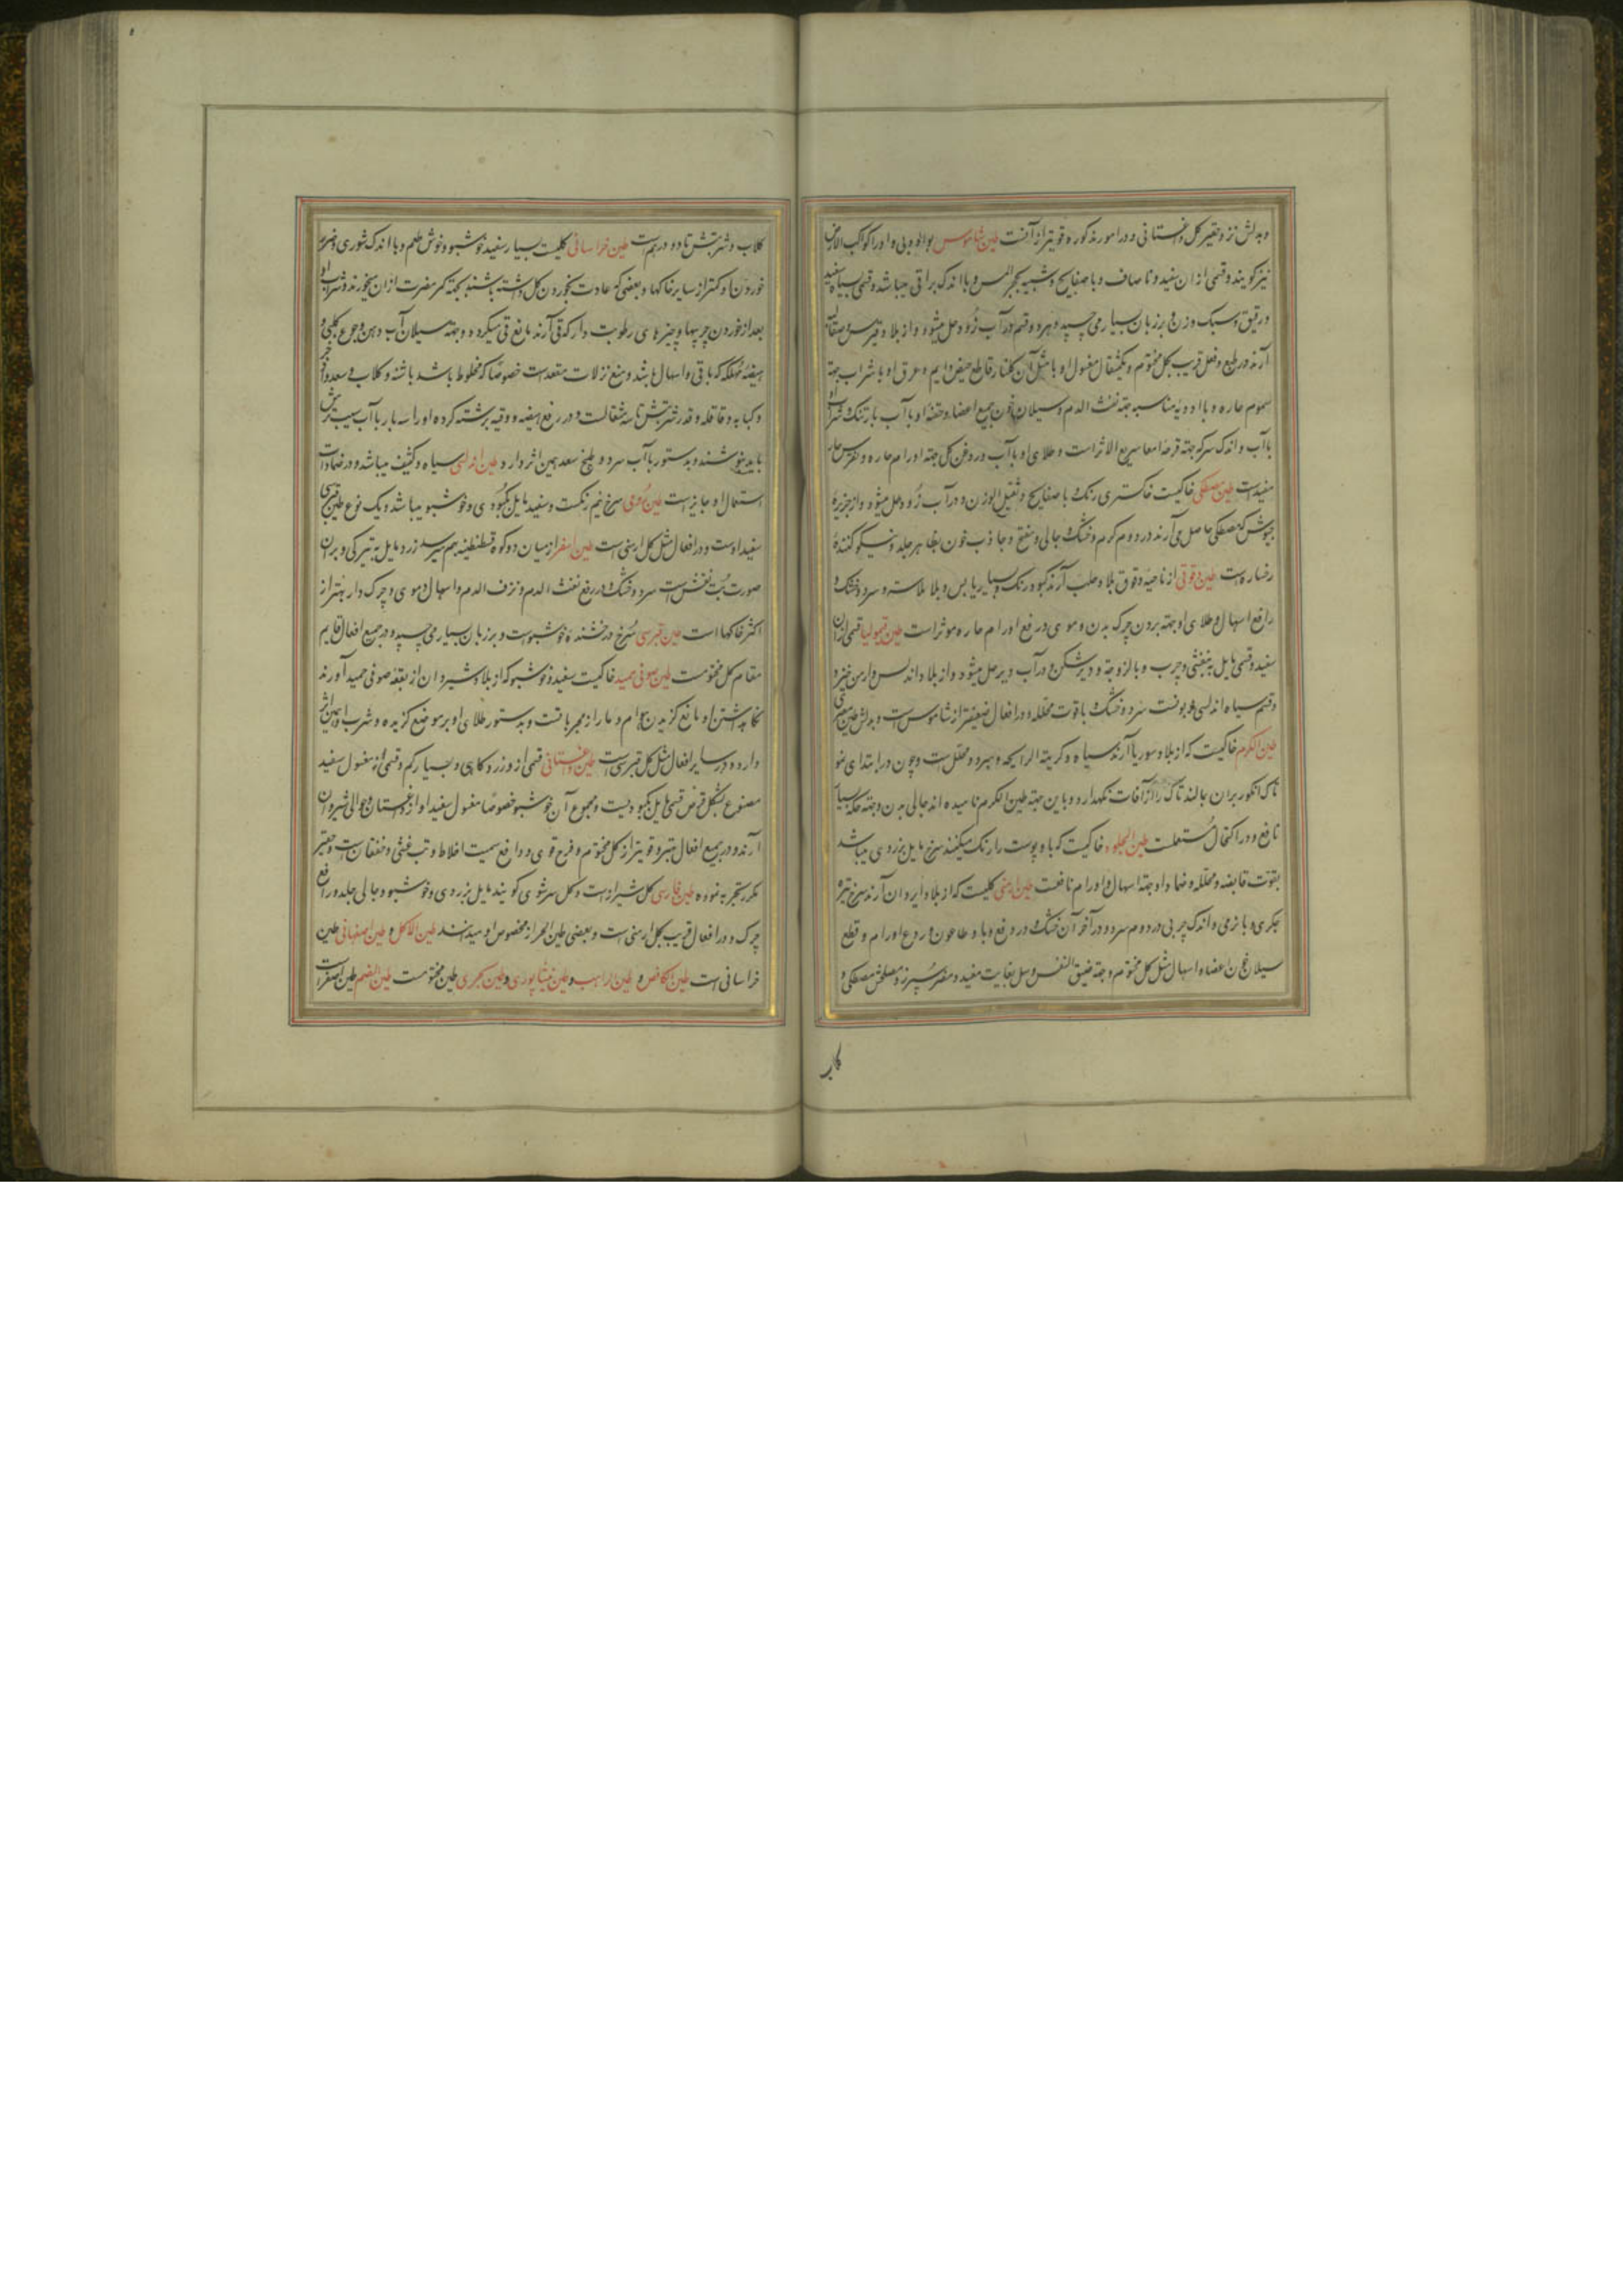 و بدلش نزد حقیر کل داغستانی و در امور مذکوره قویتر از آنست طین شاموس یونانی و او را کوکب الارض
نیز کویند و قسمی از آن سفید و نا صاف و با صفایح و شبیه بحجر المسن و با اندک براقی میباشد و قسمی بسیار سفید
و رقیق و سبک وزن و بر زبان بسیار می چسپد و هر دو قسم در آب زود حل میشود و از بلاد قبرس و صقلیه
آرند در طبع و فعل قریب بکل مختوم و یکمثقال مغسول او با مثل آن کلنار قاطع حیض دایم و عرق او با شراب جهته
سموم حاره و با ادویه مناسبه جهته نفث الدم و سیلان خون جمیع اعضا و حقنه او با آب بارتنک و شراب
با آب و اندک سرکه جهته قرحه امعا سریع الاثر است و طلای او با آب و روغن کل جهته اورام حاره و نقرس حار
مفید است طین مصطکی خاکیست خاکستری رنک و با صفایح و ثقیل الوزن و در آب زود حل میشود و از جزیره
جیوش که مصطکی حاصل می آرند در دوم کرم و خشک و جالی و منقح و جاذب خون بظاهر جلد و نیکو کننده
رخساره است طین دقوقی از ناحیه دقوق بلاد حلب آرند کبود رنک و بسیار یابس و بلا ملاسته و سرد و خشک و
رافع اسهال و طلای او جهته بردن چرک بدن و موی در رفع اورام حاره موثر است طین قیمولیا قسمی از آن
سفید و قسمی مایل به بنفشی و چرب و با لزوجته و دیر شکن و در آب دیر حل میشود و از بلاد اندلس و ارمن خیزد و
قسم سیاه اندلسی و بونست سرد و خشک با قوت محلله و در افعال ضعیفتر از شاموس است و بدلش طین مصری
طین الکرم خاکیست که از بلاد سوریا آرند سیاه و کریته الرایحه و مبرد و محلل است و چون در ابتدای نمو
تاک انکور بر آن بمالند تاک را از آفات نکهدارد و باین جهته طین الکرم نامیده اند جالی بدن و جهته حکه بسیار
نافع و در اکتحال مستعملست طین الجلود خاکیست که باو پوست را رنک میکنند سرخ مایل بزردی میباشد
بقوت قابضه و محلله و ضماد او جهته اسهال و اورام نافعست طین ارمنی کلیست که از بلاد ایروان آرند سرخ تیره
جکری و با نرمی و اندک چربی در دوم سرد و در آخر آن خشک و در دفع وبا و طاعون و ردع اورام و قطع
سیلان خون اعضا و اسهال مثل کل مختوم و جهته ضیق النفس و سل بغایت مفید و مضر سپرز و مصلحش مصطکی و
کلاب
کلاب و شربتش تا دو درهم است طین خراسانی کلیست بسیار سفید خوشبو و خوش طعم و با اندک شوری و ضرر
خوردن او کمتر از سایر خاکها و بعضی که عادت بخوردن کل داشته باشند بجهته کمر مضرت از آن میخورند و شرب او
بعد از خوردن چربیها و چیزهای رطوبت دار که قی آرند مانع قی میکردد و جهته سیلان آب دهن و جوع کلبی و
هیضه مهلکه که با قی و اسهال باشد و منع نزلات معده است خصوصا که مخلوط باشد باشنه و کلاب و سعد و اذخر
و کبابه و قاقله و قدر شربتش تا سه مثقالست و در رفع هیضه دو وقیه برشته کرده او را سه بار با آب سیب ترش
باید بنوشند و بدستور با آب سرد و بلیخ سعد همین اثر دارد طین اندلسی سیاه و کثیف میباشد و در ضمادات
استعمال او جایز است طین رومی سرخ نیم رنکست و سفید مایل بکبودی و خوشبو میباشد و یک نوع طین قبرسی
سفید اوست و در افعال مثل کل ارمنی است طین اصفر از میان دو کوه قسطنطنیه بهم میرسد زرد مایل به تیرکی و بر آن
صورت بت نقش است سرد و خشک و در رفع نفث الدم و نزف الدم و اسهال دموی و چرک دار بهتر از
اکثر خاکها است طین قبرسی سرخ درخشنده خوشبوست و بر زبان بسیار می چسپد و در جمیع افعال قایم
مقام کل مختومست طین صوفی حمید خاکیست سفید و خوشبو که از بلاد شیروان از بقعه صوفی حمید آورند
نکاهداشتن او مانع کزیدن هوام و مار از مجرباتست و بدستور طلای او بر موضع کزیده و شرب او همین اثر
دارد و در سایر افعال مثل کل قبرسی است طین داغستانی قسمی از او زرد کاهی و بسیار کم و قسمی از او مغسول سفید
مصنوع بشکل قرص قسمی مایل بکبودیست و مجموع آن خوشبو خصوصا مغسول سفید او از داغستان و حوالی شیروان
آرند و در جمیع افعال بهتر و قویتر از کل مختوم و فرح قوی و دافع سمیت اخلاط و تب غشی و خفقان است و حقیر
مکرر تجربه نموده طین فارسی کل شیراز است و کل سرشوی کویند مایل بزردی و خوشبو و جالی جلد و رافع
چرک و در افعال قریب بکل ارمنی است و بعضی طین الحر را مخصوص او میدانند طین الاکل و طین اصفهانی طین
خراسانی است طین الکاهن و طین الراهب و طین نیشابوری و طین بحری طین مختومست طین الصنم طین اصفر است